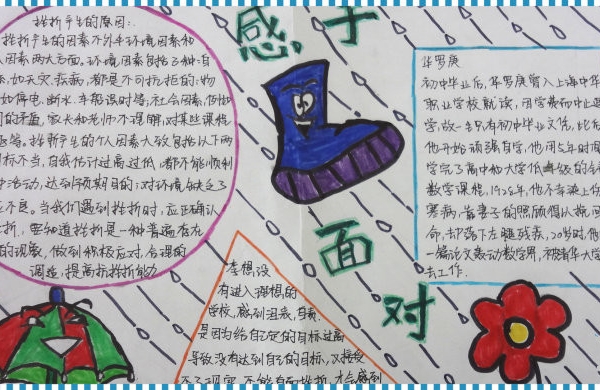 挫折产生的原因:
挫折产生的因素不外乎环境因素和
人因素两大方面。环境因素包括了种:自
如天灾、疾病,都是不可抗拒的;物
如停电、断水、车船误时等;社会因素,
的矛盾,家长和老师不理解,对某些课程
等。挫折产生的个人因素大致包括以下两
目标不当,自我估计过高过低,都不能顺利
活动,达到预期目的;对环境缺乏了
不良。当我们遇到挫折时,应正确认
折,要知道挫折是一种普遍存在
的现象,做到积极应对,合理的
调适,提高抗挫折能力
感于
面
对
华罗庚
初中毕业后,华罗庚曾入上海中华
职业学校就读,因学费而中止退
学,故一生只有初中毕业文凭,此后
他开始顽强自学,他用5年时间
学完了高中和大学低年级的全部
数学课程,1928年,他不幸染上伤
寒病,靠妻子的照顾得以挽回
命,却落下左腿残疾,20岁时,他
一篇论文轰动数学界,被清华大学
去工作.
李想没
有进入理想的
学校,感到沮丧,自卑
是因为给自己定的目标过高
导致没有达到自己的目标,又接受
不了现实,不能面对挫折,才会感到